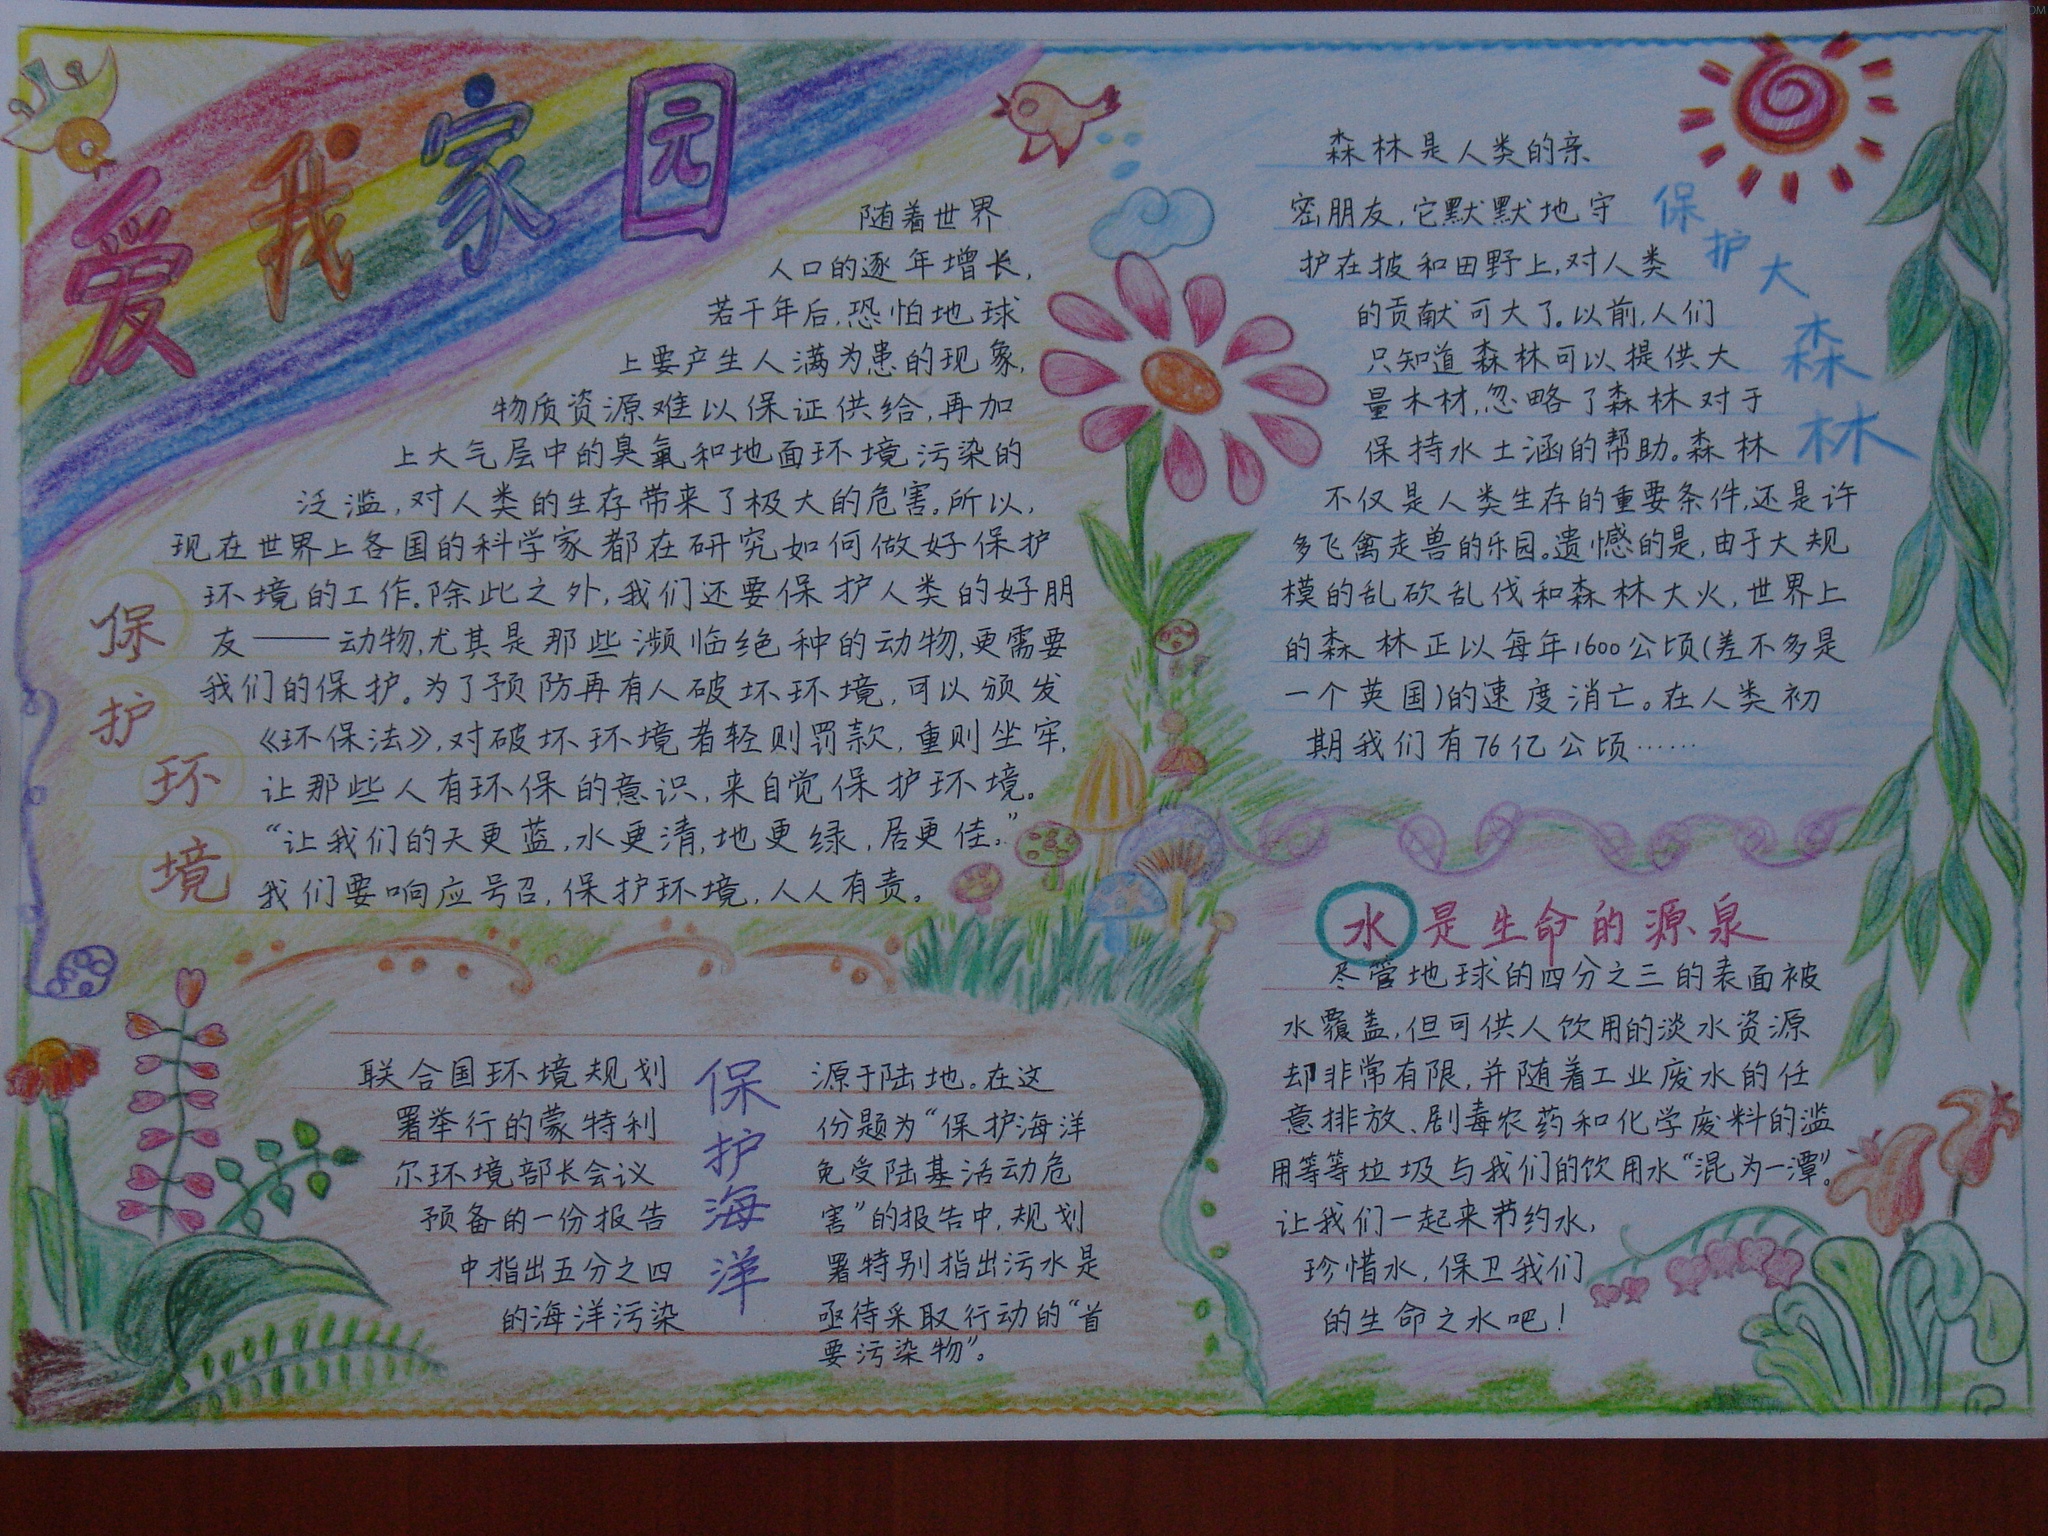 爱我家园
随着世界
人口的逐年增长,
若干年后,恐怕地球
上要产生人满为患的现象,
物质资源难以保证供给,再加
上大气层中的臭氧和地面环境污染的
泛滥,对人类的生存带来了极大的危害。所以,
现在世界上各国的科学家都在研究如何做好保护
环境的工作。除此之外,我们还要保护人类的好朋
友——动物,尤其是那些濒临绝种的动物,更需要
我们的保护。为了预防再有人破坏环境,可以颁发
《环保法》,对破坏环境者轻则罚款,重则坐牢,
让那些人有环保的意识,来自觉保护环境。
“让我们的天更蓝,水更清,地更绿,居更佳。”
我们要响应号召,保护环境,人人有责。
保护环境
森林是人类的亲
密朋友,它默默地守
护在披和田野上,对人类
的贡献可大了。以前,人们
只知道森林可以提供大
量木材,忽略了森林对于
保持水土涵的帮助。森林
不仅是人类生存的重要条件,还是许
多飞禽走兽的乐园。遗憾的是,由于大规
模的乱砍乱伐和森林大火,世界上
的森林正以每年1600公顷(差不多是
一个英国)的速度消亡。在人类初
期我们有76亿公顷……
保护大森林
联合国环境规划
署举行的蒙特利
尔环境部长会议
预备的一份报告
中指出五分之四
的海洋污染
保护海洋
源于陆地。在这
份题为“保护海洋
免受陆基活动危
害”的报告中,规划
署特别指出污水是
亟待采取行动的“首
要污染物”。
水是生命的源泉
尽管地球的四分之三的表面被
水覆盖,但可供人饮用的淡水资源
却非常有限,并随着工业废水的任
意排放、剧毒农药和化学废料的滥
用等等垃圾与我们的饮用水“混为一潭”。
让我们一起来节约水,
珍惜水,保卫我们
的生命之水吧!